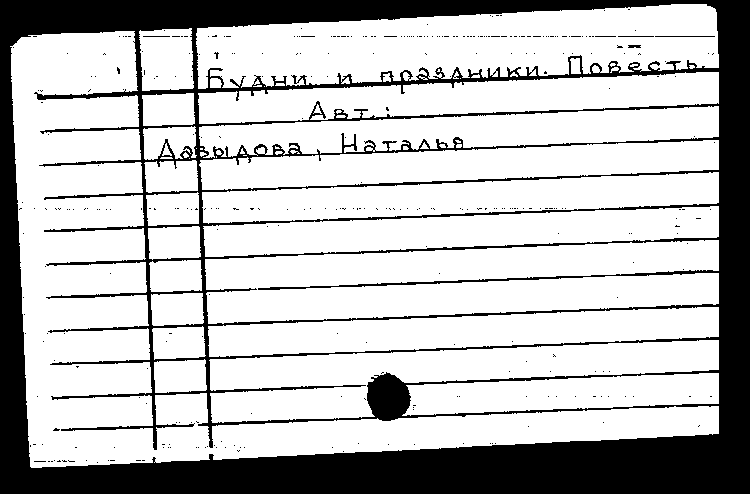 Будни и праздники. Повесть.
Авт.:
Давыдова, Наталья